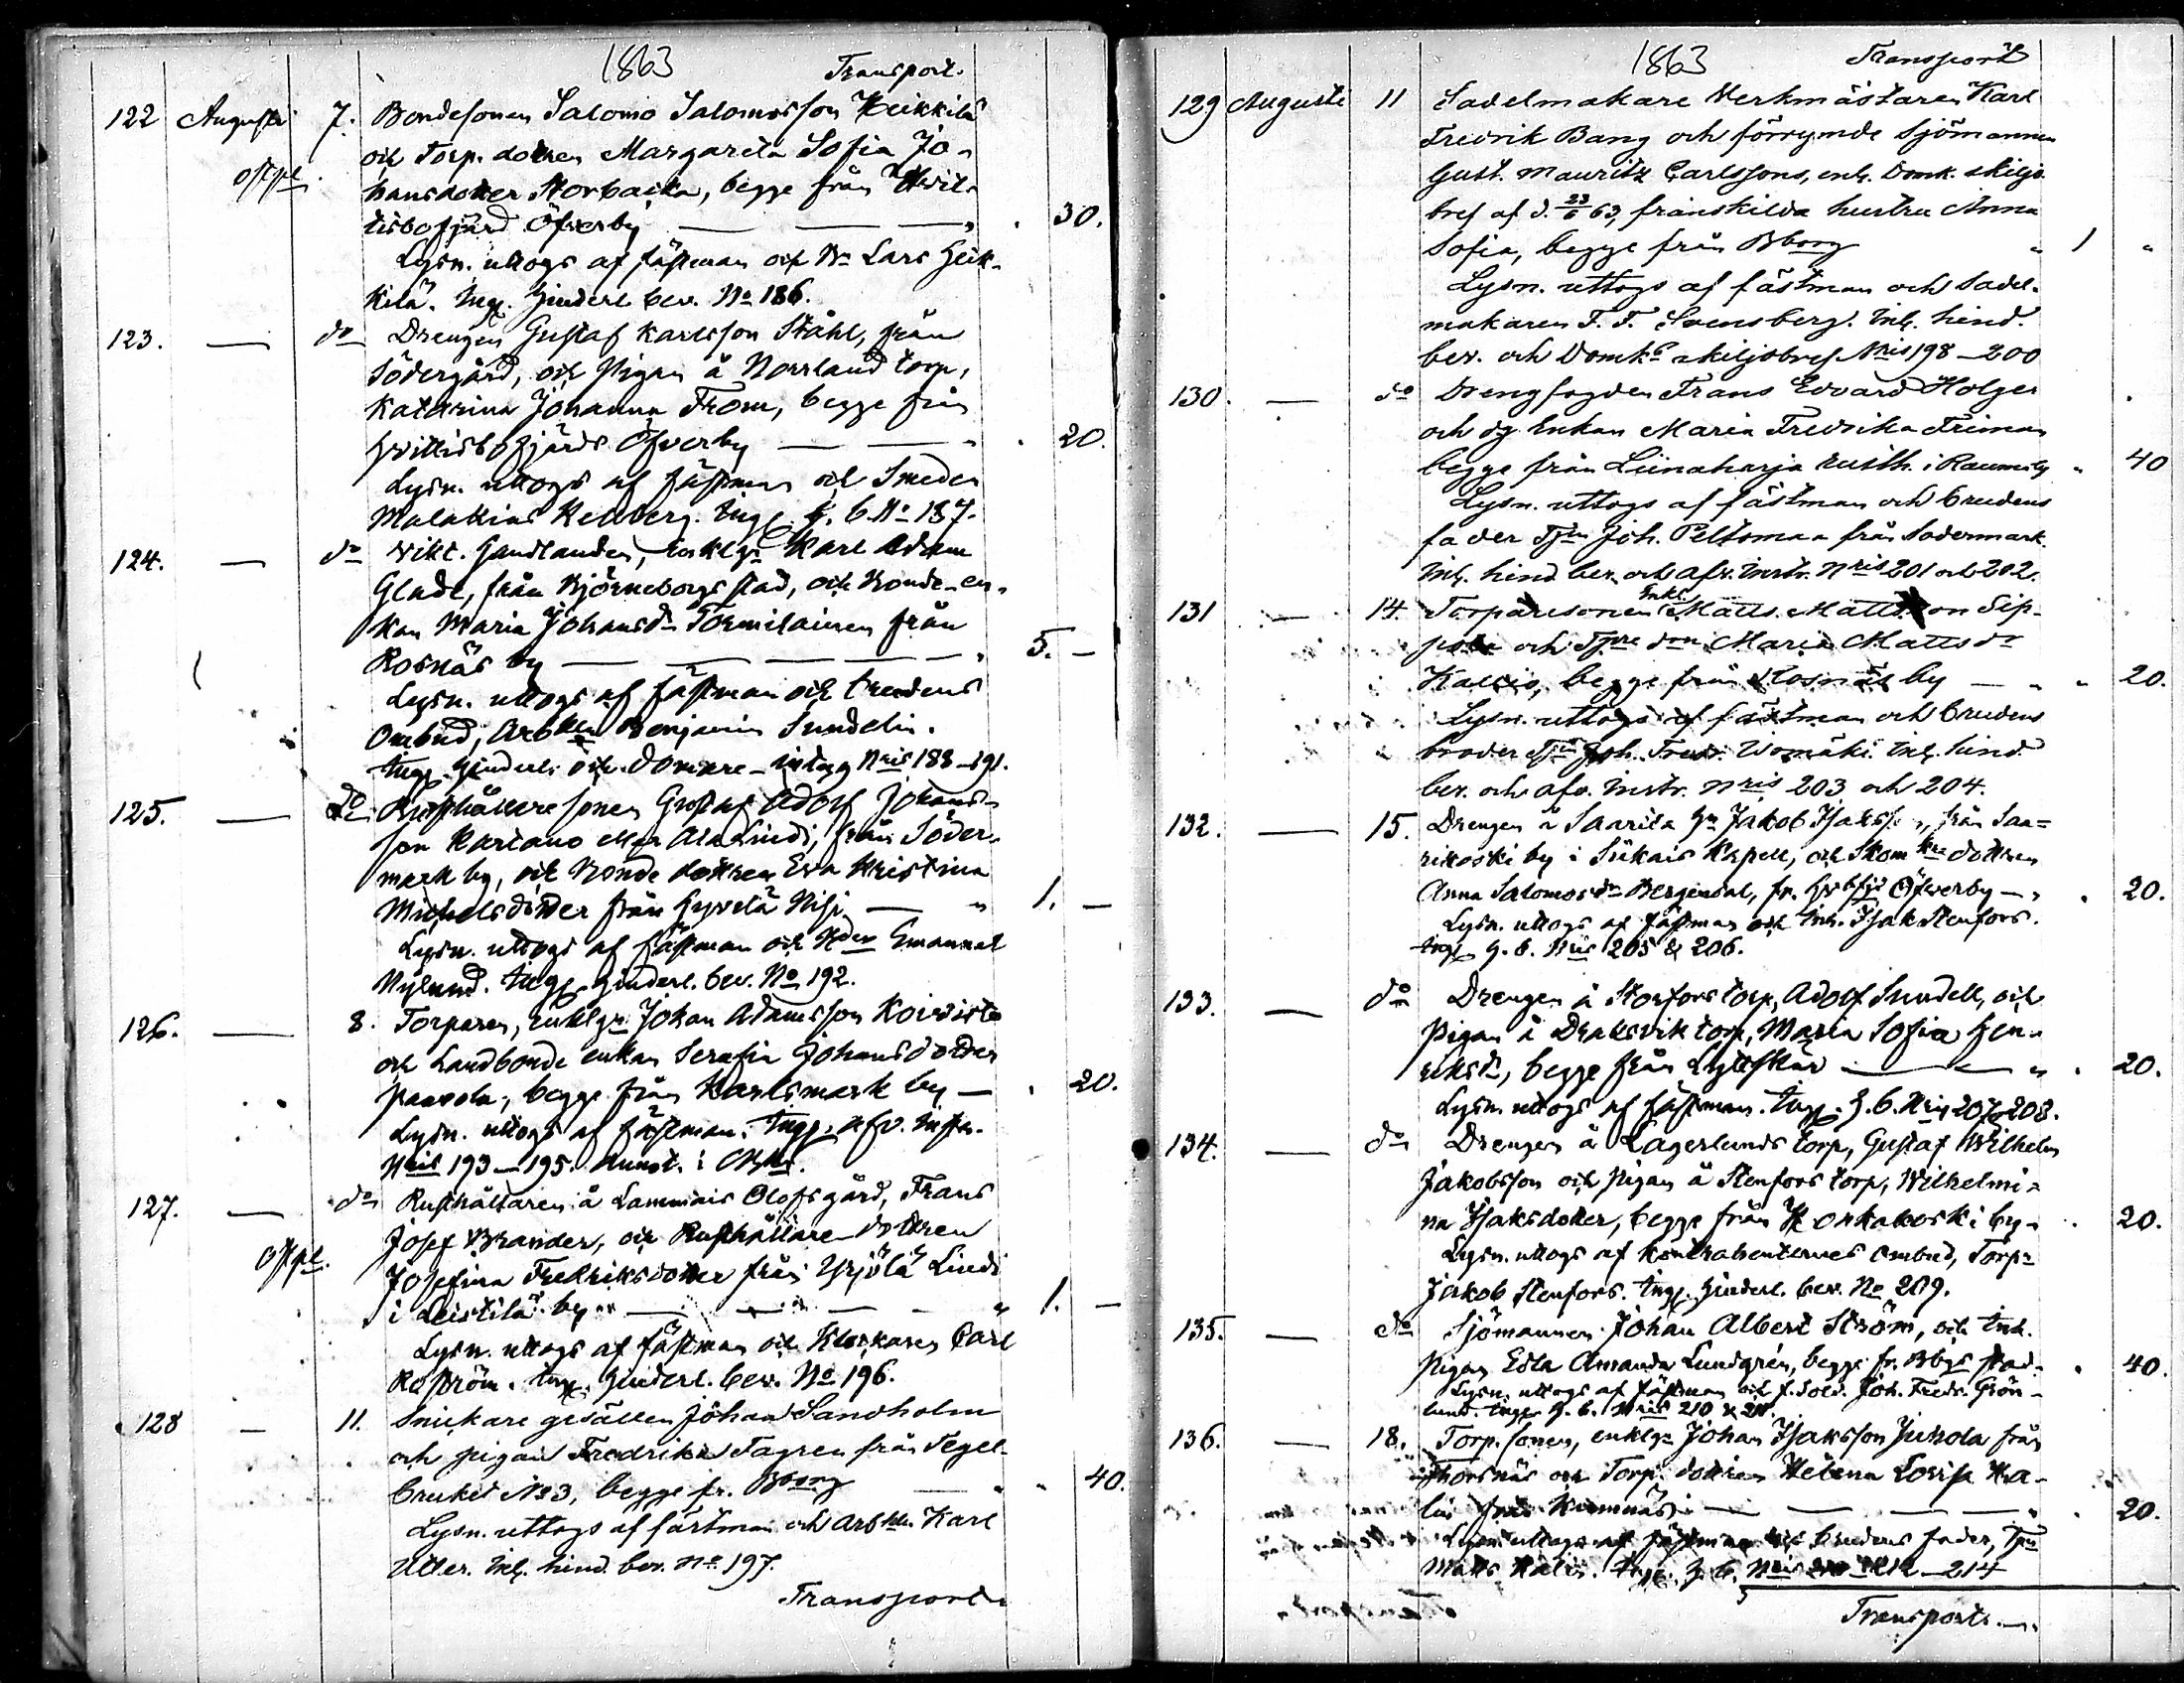 1863 Transport.
122 Augusti 7. Bondesonen Salomo Salomosson Heikkilä
och Torp. dottren Margareta Sofia Jo-
hansdotter Storbacka, begge från Hvit-
tisbofjärd Öfverby — — 30.
Lysn. uttogs af fästman och Bn Lars Heik-
kilä. Ingg. Hinderl. bev. No 186.
123. — do Drengen Gustaf Karlsson Ståhl, från
Södergård, och Pigan å Norrland torp,
Katarina Johanna From, begge från
Hvittisbofjärds Öfverby — — 20.
Lysn. uttogs af fästman och Smeden
Malakias Renberg. Ingg. H. b. No 187.
124. — do Vikt. Handlanden, Enklgn Karl Adam
Glade, från Björneborgs stad, och Bonde-en-
kan Maria Johansdr Tormilainen från
Rosnäs by — — — 5. —
Lysn. uttogs af fästman och brudens
Ombud, Arbkln Benjamin Sundelin.
Ingg. Hinderl. och Domare-intyg Nris 188-191.
125. — do Rusthållare sonen Gustaf Adolf Johans-
son Kartano eller Ala Lindi, från Söder-
mark by, och Bonde dottren Eva Kristina
Michelsdotter från Hyvelä Nisi — 1. —
Lysn. uttogs af fästman och Hden Emanuel
Nylund. Ingg. Hinderl. bev. No 192.
126. — 8. Torparen, enklgn Johan Adamsson Koivisto
och Landbonde enkan Serafia Johansdotter
Paavola, begge från Karlsmark by — 20.
Lysn. uttogs af fästman. Ingg. afv. instr.
Nris 193-195.
127. — do Rusthållaren å Lammais Olofsgård, Frans
Josef Brander, och Rusthållare-dottren
Josefina Fredriksdotter från Yrjölä Lindi
i Leistilä by — — 1. —
Lysn. uttogs af fästman och Klockaren Carl
Roström. Ingg. Hinderl. bev. No 196.
128 — 11. Snickare gesällen Johan Sandholm
och pigan Fredrika Tagren från Tegel-
bruket No 3, begge fr. Bborg — 40.
Lysn. uttogs af fästman och Arbkln Karl
Utter. Inl. hind. bev. No 197.
Transport
1863 Transport
129 Augusti 11 Sadelmakare Verkmästaren Karl
Fredrik Bang och förrymde sjömannen
Gust. Mauritz Carlssons, enl. Domk. skiljo
bref af d. 23/6 63, frånskilda hustru Anna
Sofia, begge från Bborg 1
Lysn. uttogs af fästman och Sadel-
makaren F. F. Svensberg. Inl. hind.
bev. och Domks skiljobref Nris 198-200
130. — do Drengfogden Frans Edvard Holger
och Enkan Maria Fredrika Friman
begge från Liinaharja rusth. i Raumoby 40
Lysn. uttogs af fästman och brudens
fader Tjen Joh. Peltomaa från Sodermark.
Inl. hind. bev. och afv. instr. Nris 201 och 202.
131 — 14. Torparesonen Enkl. Matts Mattsson Sip-
pola och Tpre don Maria Mattsdr
Kallio, begge från Rosnäs by — 20.
Lysn. uttogs af fästman och brudens
broder Tpn Joh. Fredr. Isomäki. Inl. hind.
bev. och afv. instr. Nris 203 och 204.
132. — 15. Drengen å Saarila Hn Jakob Isaksson, från Saa-
rikoski by i Siikais Kapell, och Skomkre dottren
Anna Salomosdr Bergendal, fr. Hvbfjd Öfverby — 20.
Lysn. uttogs af fästman och Inh. Isak Stenfors.
Ingg. H. b. Nris 205 & 206.
133. — do Drengen å Storfors torp, Adolf Sundell, och
Pigan å Draksvik torp, Maria Sofia Hen-
riksdr, begge från Lyttskär — 20.
Lysn. uttogs af fästman. Ingg. H. b. Nris 207 & 208.
134. — do Drengen å Lagerlunds torp, Gustaf Wilhelm
Jakobsson och Pigan å Stenfors torp, Wilhelmi-
na Isaksdotter, begge från Honkakoski by - 20.
Lysn. uttogs af kontrahenternes Ombud, Torpn
Jakob Stenfors. Ingg. Hinderl. bev. No 209.
135. — do Sjömannen Johan Albert Ström, och Inh.
Pigan Edla Amanda Lundgrén, begge fr. Bbgs stad. 40.
Lysn. uttogs af fästman och f. Sold. Joh. Fredr. Grön-
lund. Ingg. H. b. Nris 210 & 211.
136. — 18. Torp. sonen, enklgn Johan Isaksson Juhola från
Thorsnäs och Torp. dottren Helena Lovisa Ka-
lin från Kumnäs — — 20.
Lysn. uttogs af fästman och brudens fader, Tpn
Matts Kalin. Ingg. H. b. Nris 212-214
Transport